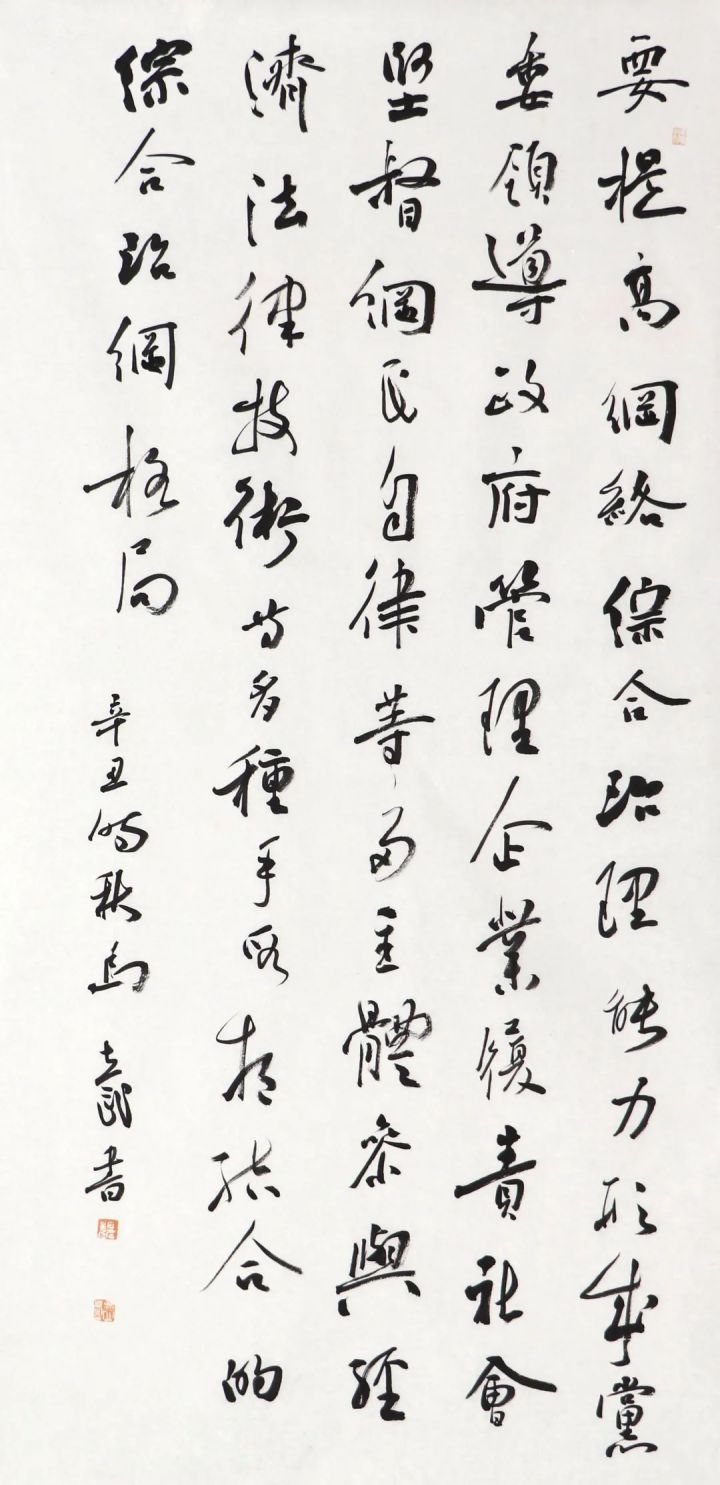 要提高網絡綜合治理能力形成黨
委領導政府管理企業履責社會
監督網民自律等多主體參與經
濟法律技術等多種手段相結合的
綜合治網格局
辛丑秋書